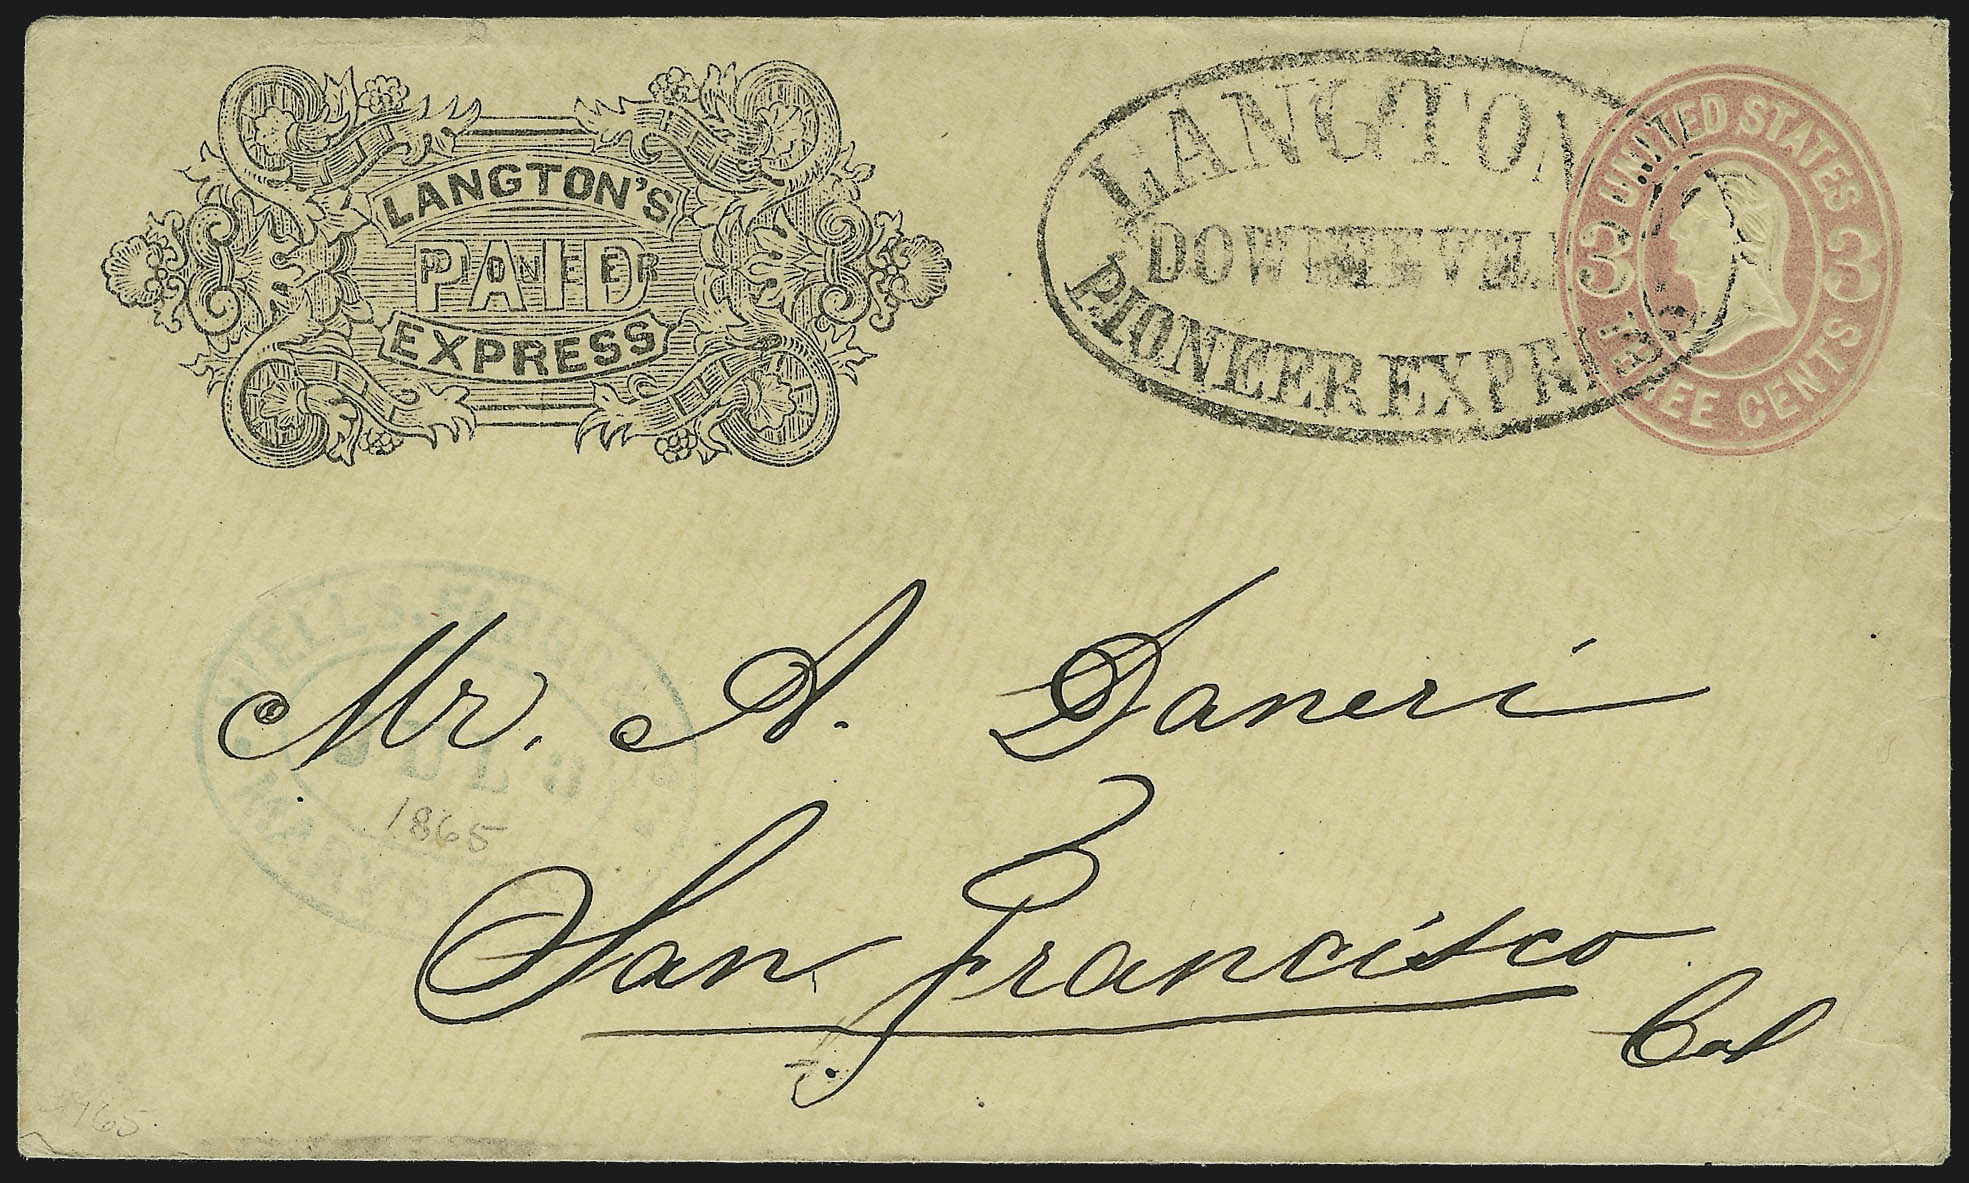 LANGTON'S
PIONEER
PAID
EXPRESS
LANGTON'S
DOWNIEVILLE
PIONEER EXPRESS
UNITED STATES
3 3
THREE CENTS
WELLS, FARGO &
JUL
1865
Mr. A. Daneri
San Francisco
Cal